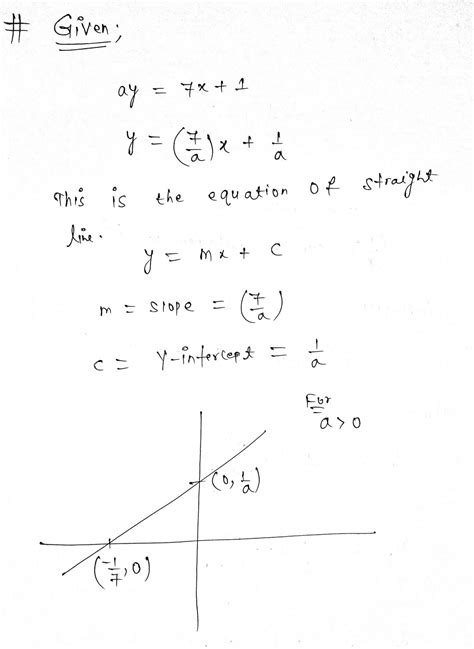 # Given;
ay = 7x + 1
y = (7/a)x + 1/a
This is the equation of straight
line.
y = mx + c
m = slope = (7/a)
c = Y-intercept = 1/a
For
a>0
(0, 1/a)
(-1/7, 0)